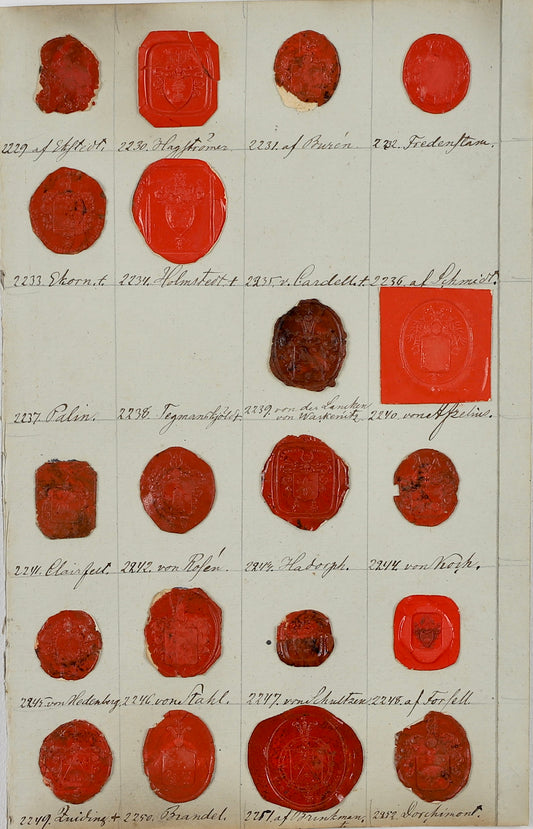 2229. af Ekstedt. 2230. Hagströmer 2231. af Burén. 2232. Fredenstam.
2233. Ekorn. † 2234. Holmstedt † 2235. v. Cardell. † 2236. af Schmidt.
2237. Palin. 2238. Tegmanskjöld † 2239. von der Lancken von Wackenitz 2240. von Afzelius.
2241. Clairfelt. 2242. von Rosén. 2243. Hadorph. 2244. von Koch.
2245. von Hedenberg 2246. von Stahl. 2247. von Schultzen 2248. af Forsell
2249. Zuiding † 2250. Brandel. 2251. af Brinkman, 2252. Dorchimont.